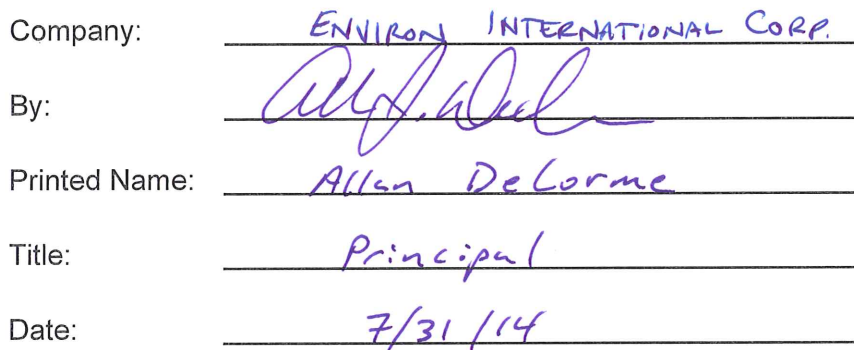 Company: ENVIRON INTERNATIONAL CORP.
By:
Printed Name: Allan DeLorme
Title: Principal
Date: 7/31/14